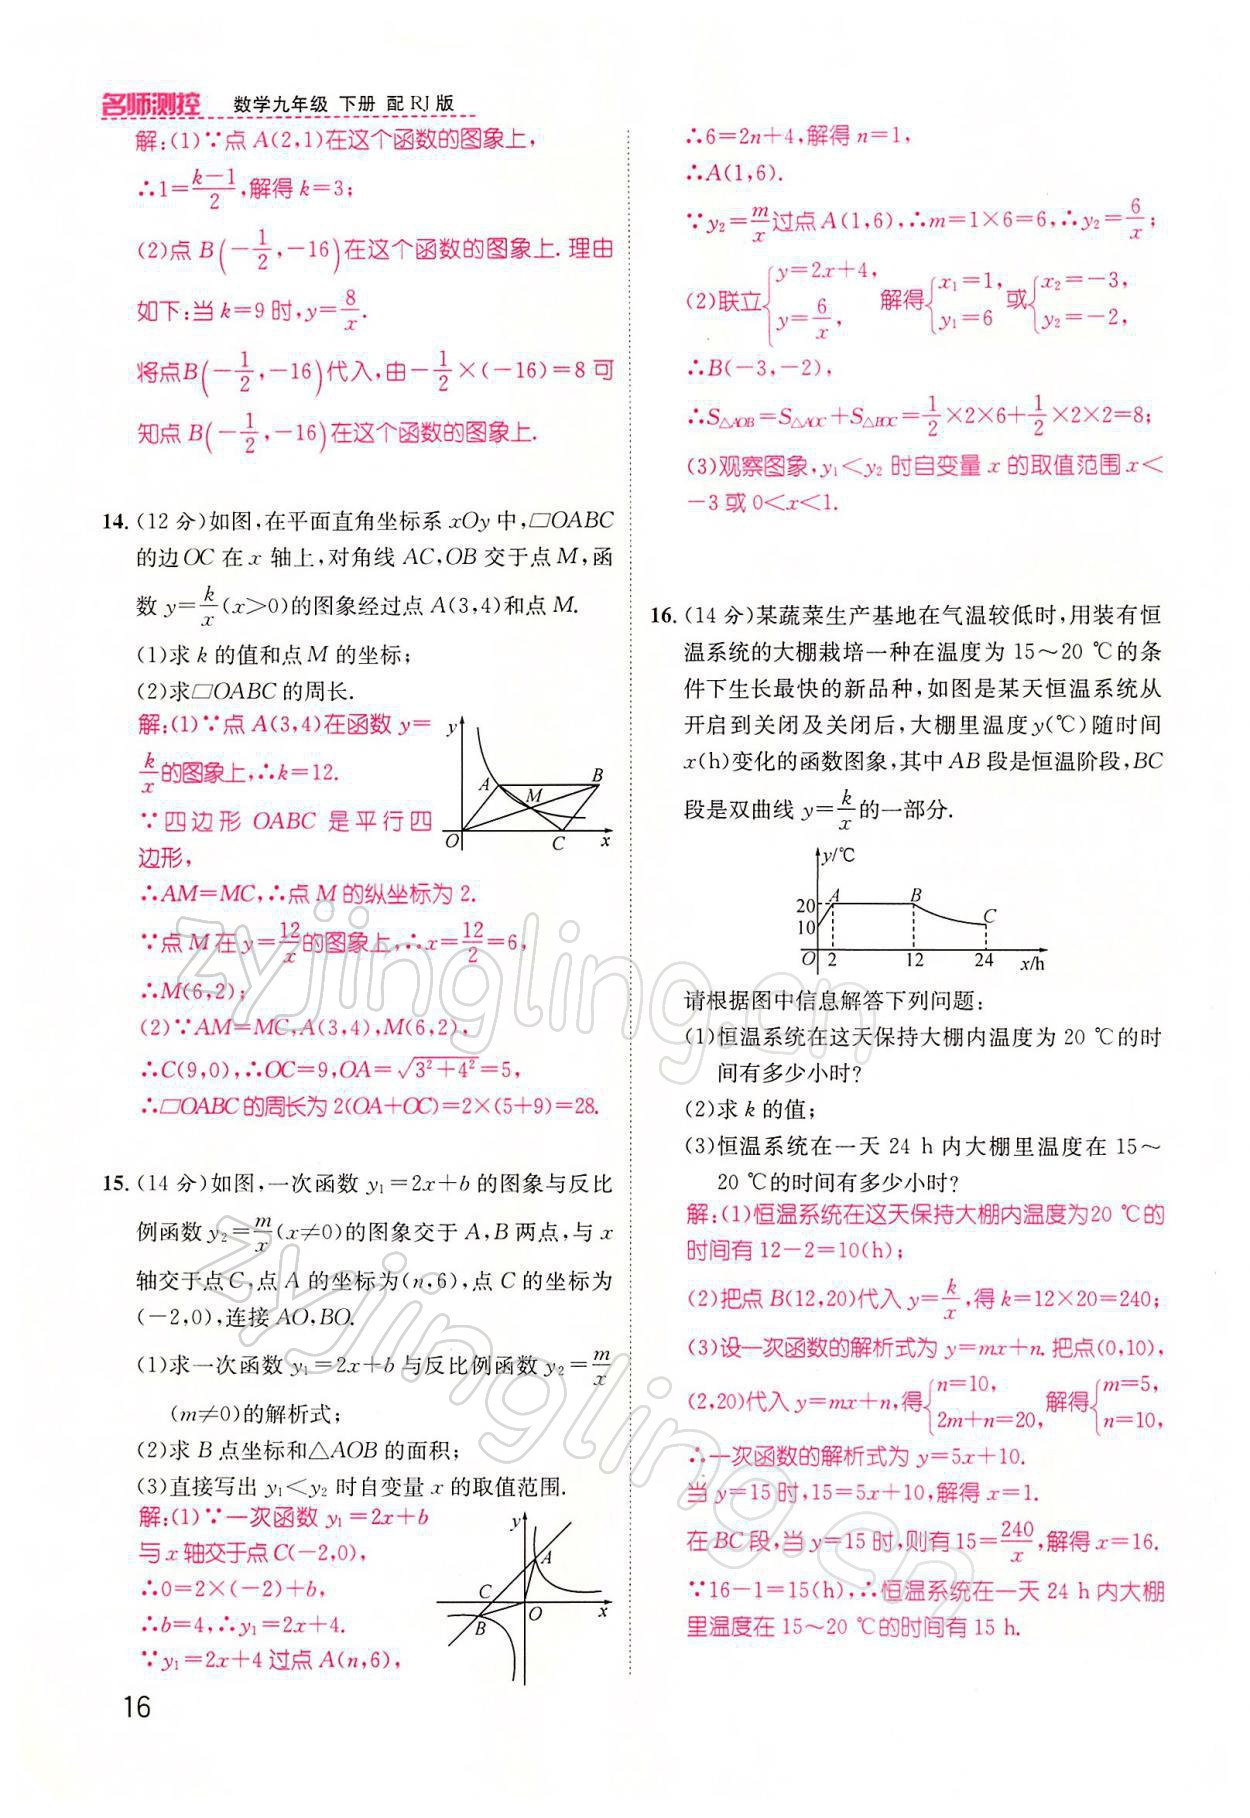 名师测控 数学九年级 下册 配 RJ 版
解:(1)∵点 A(2,1)在这个函数的图象上,
∴1=\frac{k-1}{2},解得 k=3;
(2)点 B(-\frac{1}{2},-16)在这个函数的图象上.理由
如下:当 k=9 时,y=\frac{8}{x}.
将点B(-\frac{1}{2},-16)代入,由-\frac{1}{2}×(-16)=8 可
知点 B(-\frac{1}{2},-16)在这个函数的图象上.
14.(12 分)如图,在平面直角坐标系 xOy 中,□OABC
的边 OC 在 x 轴上,对角线 AC,OB 交于点 M,函
数 y=\frac{k}{x}(x>0)的图象经过点 A(3,4)和点 M.
(1)求 k 的值和点 M 的坐标;
(2)求□OABC 的周长.
解:(1)∵点 A(3,4)在函数 y=
\frac{k}{x}的图象上,∴k=12.
∵四边形 OABC 是平行四
边形,
∴AM=MC,∴点 M 的纵坐标为 2.
∵点 M 在 y=\frac{12}{x}的图象上,∴x=\frac{12}{2}=6,
∴M(6,2);
(2)∵AM=MC,A(3,4),M(6,2),
∴C(9,0),∴OC=9,OA=\sqrt{3²+4²}=5,
∴□OABC 的周长为 2(OA+OC)=2×(5+9)=28.
y
A
B
M
O
C
x
15.(14 分)如图,一次函数 y₁=2x+b 的图象与反比
例函数 y₂=\frac{m}{x}(x≠0)的图象交于 A,B 两点,与 x
轴交于点 C,点 A 的坐标为(n,6),点 C 的坐标为
(-2,0),连接 AO,BO.
(1)求一次函数 y₁=2x+b 与反比例函数 y₂=\frac{m}{x}
(m≠0)的解析式;
(2)求 B 点坐标和△AOB 的面积;
(3)直接写出 y₁<y₂ 时自变量 x 的取值范围.
解:(1)∵一次函数 y₁=2x+b
与 x 轴交于点 C(-2,0),
∴0=2×(-2)+b,
∴b=4,∴y₁=2x+4.
∵y₁=2x+4 过点 A(n,6),
y
A
C
B
O
x
16
∴6=2n+4,解得 n=1,
∴A(1,6).
∵y₂=\frac{m}{x}过点 A(1,6),∴m=1×6=6,∴y₂=\frac{6}{x};
(2)联立{y=2x+4, y=\frac{6}{x}, 解得{x₁=1, y₁=6 或{x₂=-3, y₂=-2,
∴B(-3,-2),
∴S△AOB=S△AOC+S△BOC=\frac{1}{2}×2×6+\frac{1}{2}×2×2=8;
(3)观察图象,y₁<y₂ 时自变量 x 的取值范围 x<
-3 或 0<x<1.
16.(14 分)某蔬菜生产基地在气温较低时,用装有恒
温系统的大棚栽培一种在温度为 15～20 ℃的条
件下生长最快的新品种,如图是某天恒温系统从
开启到关闭及关闭后,大棚里温度 y(℃)随时间
x(h)变化的函数图象,其中 AB 段是恒温阶段,BC
段是双曲线 y=\frac{k}{x}的一部分.
y/℃
20
10
A
B
C
O 2 12 24 x/h
请根据图中信息解答下列问题:
(1)恒温系统在这天保持大棚内温度为 20 ℃的时
间有多少小时?
(2)求 k 的值;
(3)恒温系统在一天 24 h 内大棚里温度在 15～
20 ℃的时间有多少小时?
解:(1)恒温系统在这天保持大棚内温度为20 ℃的
时间有 12-2=10(h);
(2)把点 B(12,20)代入 y=\frac{k}{x},得 k=12×20=240;
(3)设一次函数的解析式为 y=mx+n.把点(0,10),
(2,20)代入 y=mx+n,得{n=10, 2m+n=20, 解得{m=5, n=10,
∴一次函数的解析式为 y=5x+10.
当 y=15 时,15=5x+10,解得 x=1.
在 BC 段,当 y=15 时,则有 15=\frac{240}{x},解得 x=16.
∵16-1=15(h),∴恒温系统在一天 24 h 内大棚
里温度在 15～20 ℃的时间有 15 h.
zyjingling.cn
zyjingling.cn